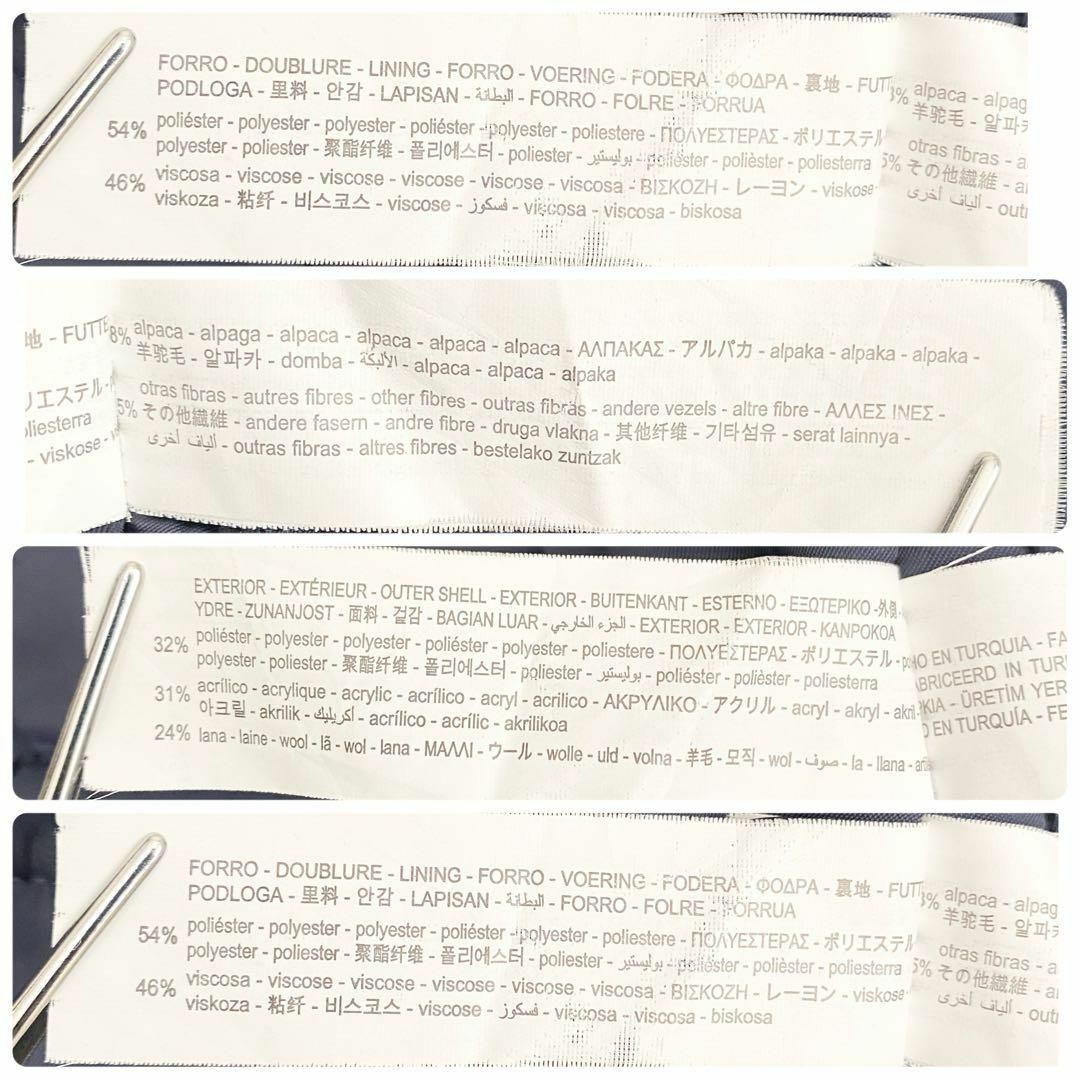 FORRO - DOUBLURE - LINING - FORRO - VOERING - FODERA - ΦΟΔΡΑ - 裏地 - FUTT
PODLOGA - 里料 - 안감 - LAPISAN - البطانة - FORRO - FOLRE - FORRUA
54% poliéster - polyester - polyester - poliéster - polyester - poliestere - ΠΟΛΥΕΣΤΕΡΑΣ - ポリエステル
polyester - poliester - 聚酯纤维 - 폴리에스터 - poliester - بوليستير - poliéster - polièster - poliesterra
46% viscosa - viscose - viscose - viscose - viscose - viscosa - ΒΙΣΚΟΖΗ - レーヨン - viskose -
viskoza - 粘纤 - 비스코스 - viscose - فسكوز - viscosa - viscosa - biskosa
8% alpaca - alpag
羊驼毛 - 알파카
otras fibras - a
5% その他繊維 - a
ألياف أخرى - outr
地 - FUTTE
リエステル -
oliesterra
- viskose -
8% alpaca - alpaga - alpaca - alpaca - alpaca - alpaca - ΑΛΠΑΚΑΣ - アルパカ - alpaka - alpaka - alpaka -
羊驼毛 - 알파카 - domba - الألبكة - alpaca - alpaca - alpaka
otras fibras - autres fibres - other fibres - outras fibras - andere vezels - altre fibre - ΑΛΛΕΣ ΙΝΕΣ -
5% その他繊維 - andere fasern - andre fibre - druga vlakna - 其他纤维 - 기타섬유 - serat lainnya -
ألياف أخرى - outras fibras - altres fibres - bestelako zuntzak
EXTERIOR - EXTÉRIEUR - OUTER SHELL - EXTERIOR - BUITENKANT - ESTERNO - ΕΞΩΤΕΡΙΚΟ - 外側 -
YDRE - ZUNANJOST - 面料 - 겉감 - BAGIAN LUAR - الجزء الخارجي - EXTERIOR - EXTERIOR - KANPOKOA
32% poliéster - polyester - polyester - poliéster - polyester - poliestere - ΠΟΛΥΕΣΤΕΡΑΣ - ポリエステル - po
polyester - poliester - 聚酯纤维 - 폴리에스터 - poliester - بوليستير - poliéster - polièster - poliesterra
31% acrílico - acrylique - acrylic - acrílico - acryl - acrilico - ΑΚΡΥΛΙΚΟ - アクリル - acryl - akryl - akril -
아크릴 - akrilik - أكريليك - acrílico - acrílic - akrilikoa
24% lana - laine - wool - lã - wol - lana - ΜΑΛΛΙ - ウール - wolle - uld - volna - 羊毛 - 모직 - wol - صوف - la - llana -
HO EN TURQUIA - FA
ABRICEERD IN TUR
KIA - ÜRETİM YER
O EN TURQUÍA - FE
FORRO - DOUBLURE - LINING - FORRO - VOERING - FODERA - ΦΟΔΡΑ - 裏地 - FUTT
PODLOGA - 里料 - 안감 - LAPISAN - البطانة - FORRO - FOLRE - FORRUA
54% poliéster - polyester - polyester - poliéster - polyester - poliestere - ΠΟΛΥΕΣΤΕΡΑΣ - ポリエステル
polyester - poliester - 聚酯纤维 - 폴리에스터 - poliester - بوليستير - poliéster - polièster - poliesterra
46% viscosa - viscose - viscose - viscose - viscose - viscosa - ΒΙΣΚΟΖΗ - レーヨン - viskose -
viskoza - 粘纤 - 비스코스 - viscose - فسكوز - viscosa - viscosa - biskosa
8% alpaca - alpag
羊驼毛 - 알파카
otras fibras - a
5% その他繊維 - a
ألياف أخرى - outr